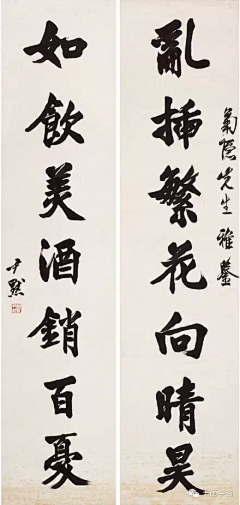 菊隱先生雅鑒
亂插繁花向晴昊
如飲美酒銷百憂
尹默